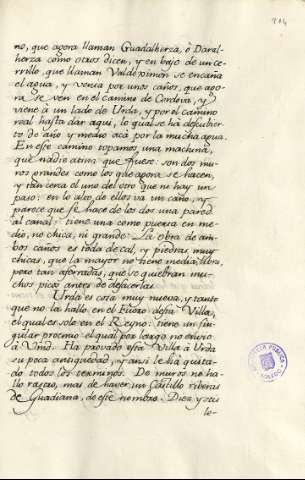 no, que agora llaman Guadalherza, ò Daral-
herza como otros dicen, y en bajo de un ce-
rrillo, que llaman Valdesimon se encaña
el agua, y venia por unos caños, que ago-
ra se ven en el camino de Cordova, y
viene à un lado de Urda, y por el camino
real hasta dar aqui, lo qual se hà descubier-
to de año y medio acà por la mucha agua.
En este camino topamos, una machina,
que nadie atina que fuese. son dos mu-
ros grandes como los que agora se hacen,
y tan cerca el uno del otro que no hay un
paso: en lo alto, de ellos va un caño, y
parece que se hace de los dos una pared
al canal: tiene una como puerta en me-
dio, no chica, ni grande. La obra de am-
bos caños es toda de cal, y piedras muy
chicas, que la mayor no tiene media libra,
pero tan aferradas, que se quiebran mu-
chos picos antes de desacerlas.
Urda es cosa muy nueva, y tanto
que no la hallo en el Fuero desta Villa,
el qual es solo en el Reyno: tiene un sin-
gular proemio el qual por largo no envio
à Vmd. Ha provado esta Villa à Urda
su poca antiguedad, y ansi le hà quita-
do todos los terminos. De muros no ha-
llo rastro, mas de haver un Castillo riberas
de Guadiana, de este nombre. Diez y seis
le-